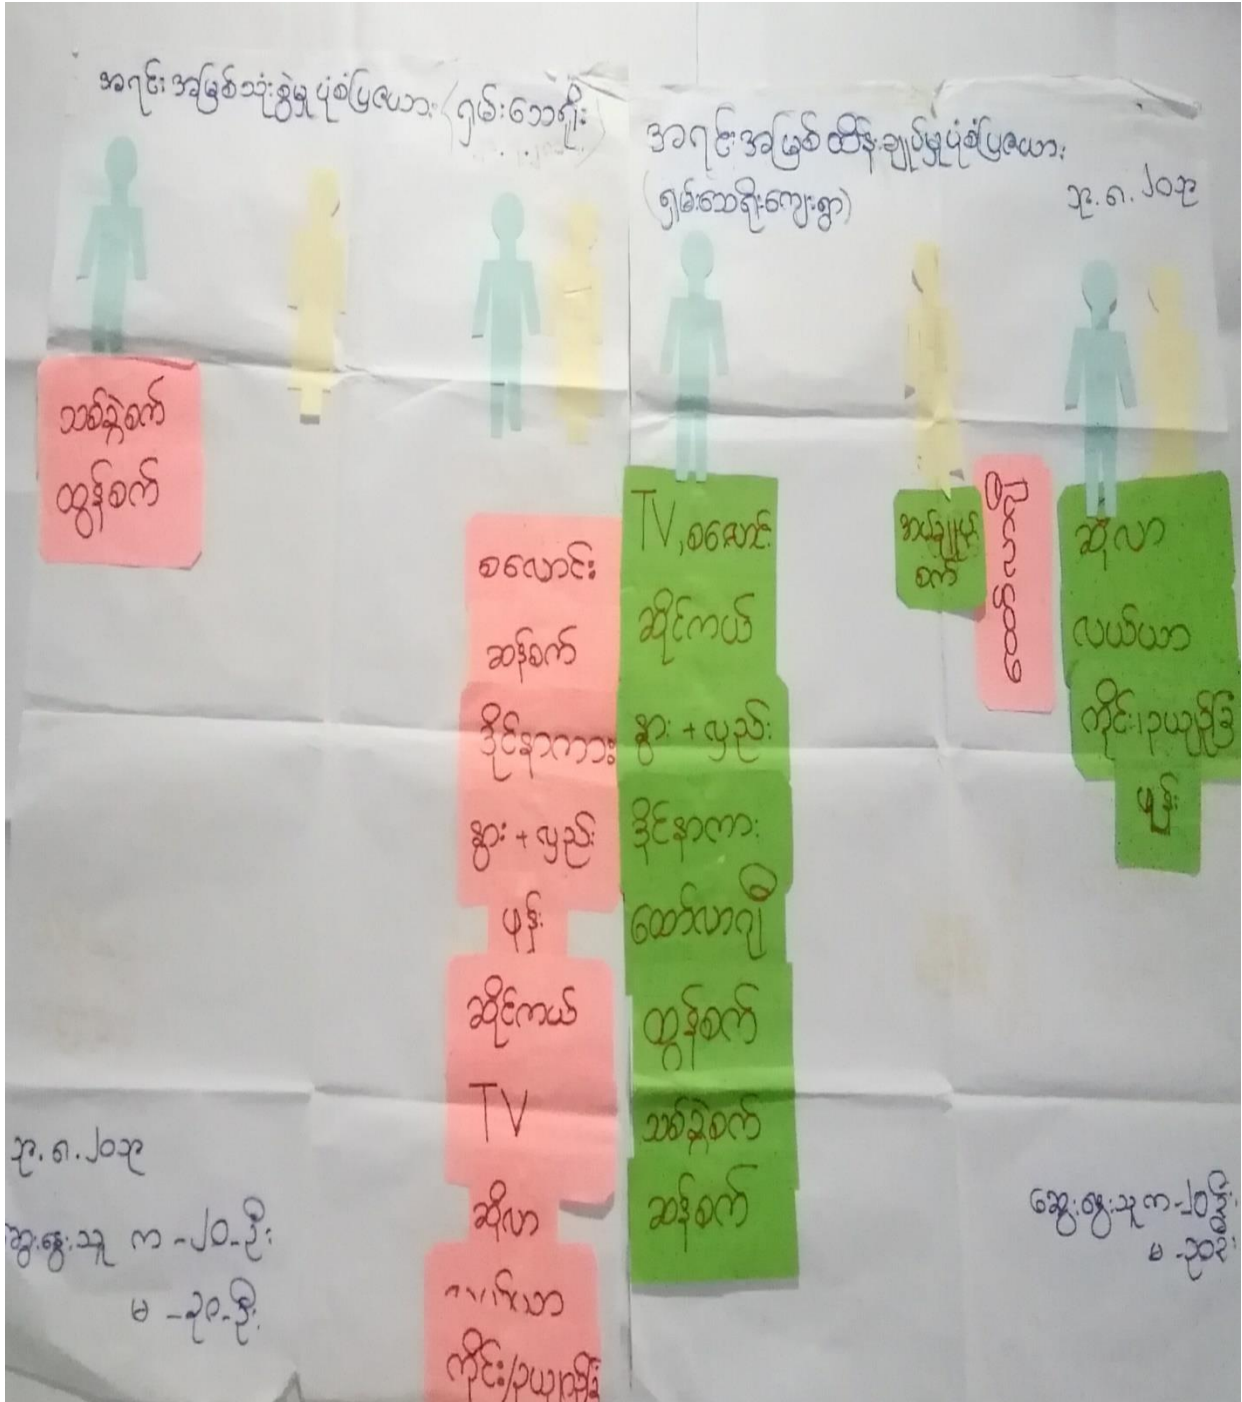 အရင်းအမြစ်သုံးစွဲမှု ပုံစံပြဇယား (ရှမ်းသေရိုး)
သစ်ခွဲစက်
ထွန်စက်
စလောင်း
ဆန်စက်
ဒိုင်နာကား
နွား + လှည်း
ဖုန်း
ဆိုင်ကယ်
TV
ဆိုလာ
ကိုင်း/ဥယျာဉ်ခြံ
၃၁.၈.၂၀၁၃
ဆွေးနွေးသူ က -၂၀-ဦး
မ -၃၀-ဦး
အရင်းအမြစ် ထိန်းချုပ်မှု ပုံစံပြဇယား
(ရှမ်းသေရိုးကျေးရွာ)
TV, စလောင်း
ဆိုင်ကယ်
နွား + လှည်း
ဒိုင်နာကား
ထော်လာဂျီ
ထွန်စက်
သစ်ခွဲစက်
ဆန်စက်
အပ်ချုပ်
စက်
ဆိုလာ
လယ်ယာ
ကိုင်း၊ဥယျာဉ်ခြံ
ဖုန်း
ဆွေးနွေးသူ က-၂၀ဦး
မ -၃၀ဦး